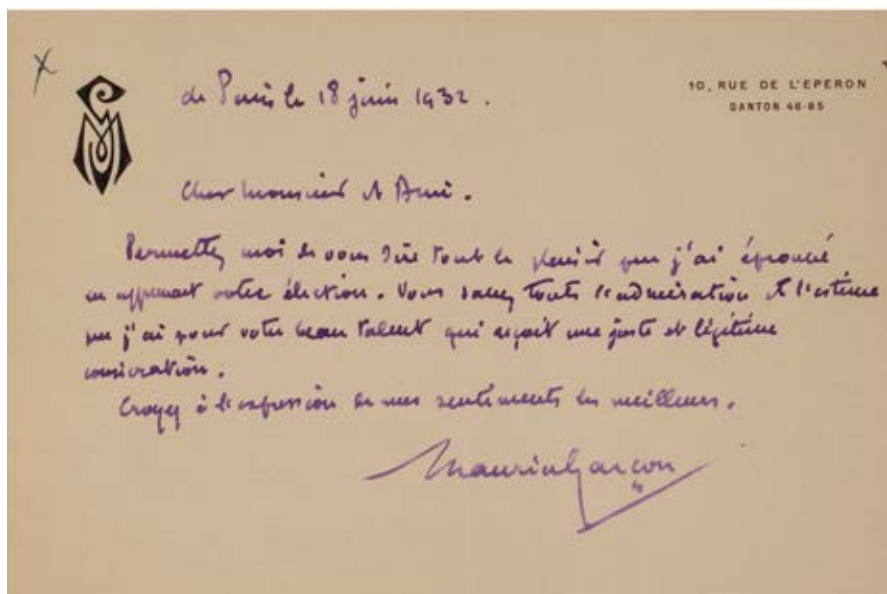 de Paris le 18 juin 1932.
10, RUE DE L'EPERON
DANTON 46-85
Cher Monsieur et Ami.
Permettez moi de vous dire tout le plaisir que j'ai éprouvé
en apprenant votre élection. Vous savez toute l'admiration et l'estime
que j'ai pour votre beau talent qui reçoit une juste et légitime
consécration.
Croyez à l'expression de mes sentiments les meilleurs.
Maurice Garçon